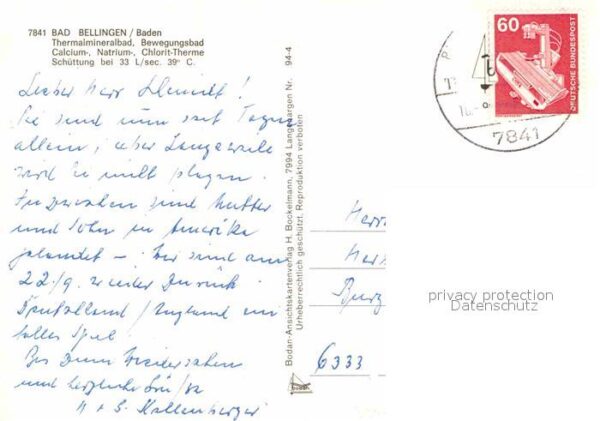 7841 BAD BELLINGEN / Baden
Thermalmineralbad, Bewegungsbad
Calcium-, Natrium-, Chlorit-Therme
Schüttung bei 33 L/sec. 39° C.
Lieber Herr Schmidt!
Sie sind nun seit Tagen
allein, aber Langeweile
wird Sie nicht plagen.
Inzwischen sind Mutter
und Sohn in Amerika
gelandet - Wir sind am
22./9. wieder zurück.
Deutschland / England ein
tolles Spiel.
Bis zum Wiedersehen
und herzliche Grüße
H + S. Kallenberger
Bodan-Ansichtskartenverlag H. Bockelmann, 7994 Langenargen Nr. 94-4
Urheberrechtlich geschützt, Reproduktion verboten
bodan
60
DEUTSCHE BUNDESPOST
7841
Herr
Herr
Burg
6333
privacy protection
Datenschutz